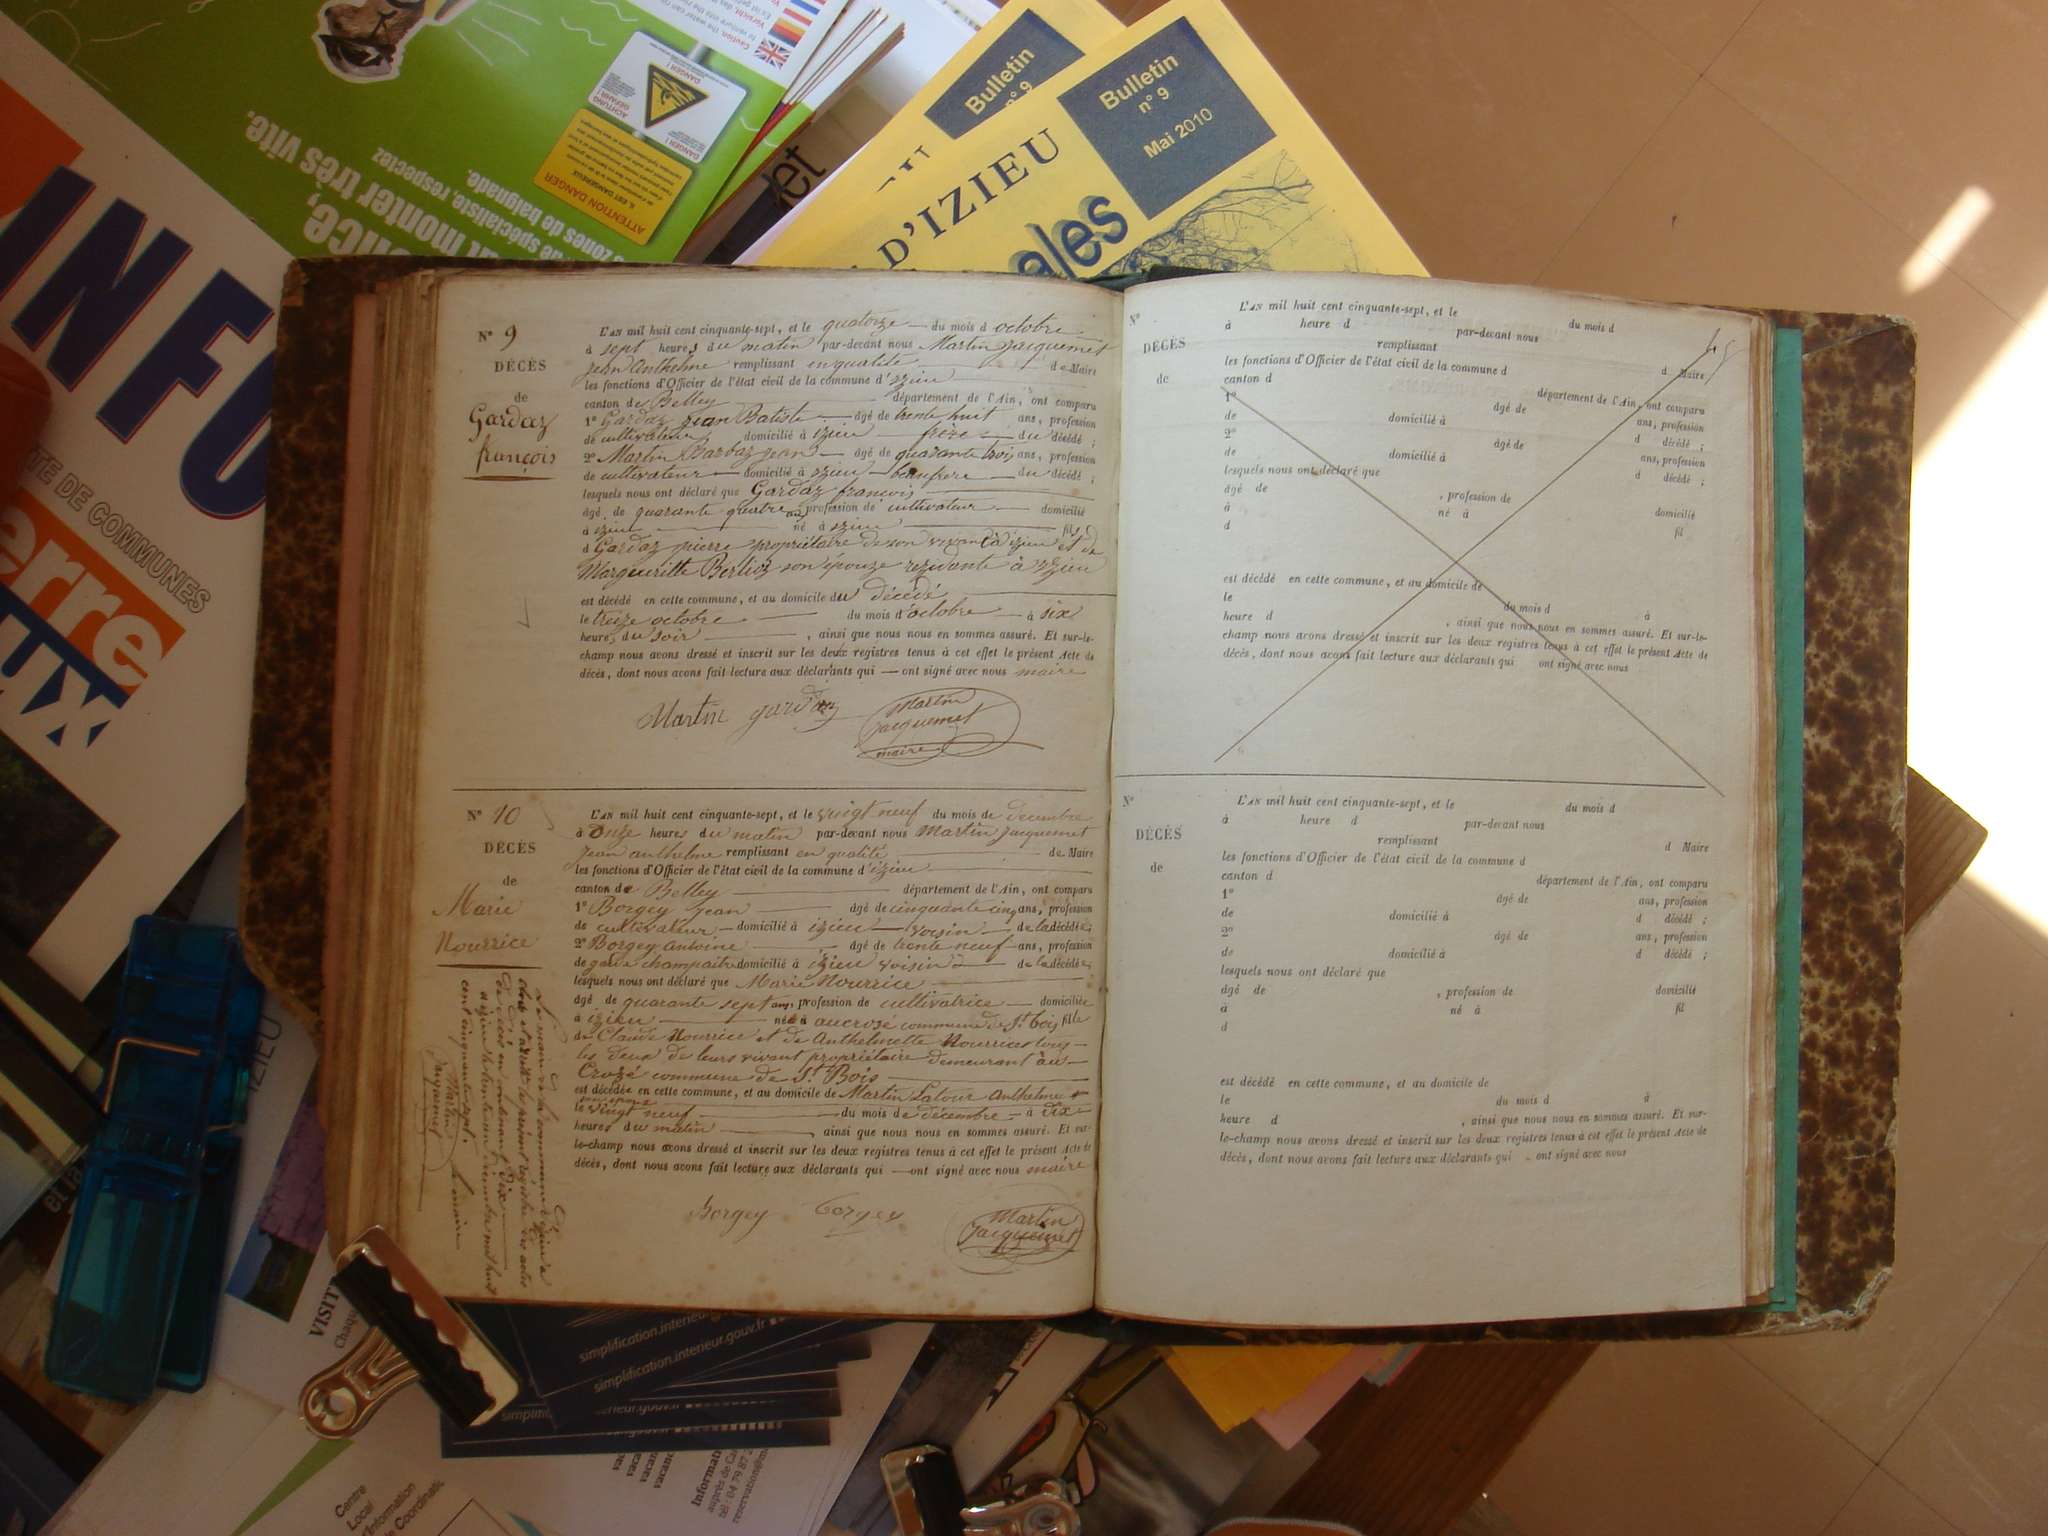 INFO
TE DE COMMUNES
erre
UX
once,
ut monter très vite.
de spécialiste, respectez
zones de baignade.
ATTENTION DANGER
DANGER !
Bulletin
n° 9
Bulletin
n° 9
Mai 2010
D'IZIEU
ales
N° 9
DÉCÈS
de
Gardaz
françois
L'AN mil huit cent cinquante-sept, et le quatorze du mois d octobre
à sept heures du matin par-devant nous Martin Jacquemet
jean Anthelme remplissant en qualité de Maire
les fonctions d'Officier de l'état civil de la commune d'izieu
canton de Belley département de l'Ain, ont comparu
1° Gardaz jean Batiste âgé de trente huit ans, profession
de cultivateur domicilié à izieu frère du décédé ;
2° Martin Barbaz jean âgé de quarante trois ans, profession
de cultivateur domicilié à izieu beaufrere du décédé ;
lesquels nous ont déclaré que Gardaz françois
âgé de quarante quatre ans profession de cultivateur domicilié
à izieu né à izieu fils
d Gardaz pierre propriétaire de son vivant à izieu et de
Margueritte Berlioz son épouze rezidante à izieu
est décédé en cette commune, et au domicile du décédé
le treize octobre du mois d'octobre à six
heures du soir , ainsi que nous nous en sommes assuré. Et sur-le-
champ nous avons dressé et inscrit sur les deux registres tenus à cet effet le présent Acte de
décès, dont nous avons fait lecture aux déclarants qui ont signé avec nous maire
Martin gardaz Martin
Jacquemet
maire
N° 10
DÉCÈS
de
Marie
Nourrice
L'AN mil huit cent cinquante-sept, et le vingt neuf du mois de décembre
à onze heures du matin par-devant nous Martin Jacquemet
jean anthelme remplissant en qualité de Maire
les fonctions d'Officier de l'état civil de la commune d'izieu
canton de Belley département de l'Ain, ont comparu
1° Borgey jean âgé de cinquante cinq ans, profession
de cultivateur domicilié à izieu voisin de la décédée ;
2° Borgey antoine âgé de trente neuf ans, profession
de garde champaitre domicilié à izieu voisin de la décédée
lesquels nous ont déclaré que Marie Nourrice
âgé de quarante sept ans, profession de cultivatrice domiciliée
à izieu née à aucrosé commune de St Bois fille
de Claude Nourrice et de Anthelmette Nourrice tous
les deux de leurs vivant propriétaire demeurant au
Crozé commune de St Bois
est décédée en cette commune, et au domicile de Martin Latour Anthelme
son epoux
le vingt neuf du mois de décembre à dix
heures du matin , ainsi que nous nous en sommes assuré. Et sur-
le-champ nous avons dressé et inscrit sur les deux registres tenus à cet effet le présent Acte de
décès, dont nous avons fait lecture aux déclarants qui ont signé avec nous maire
Borgey Borgey Martin
Jacquemet
Le maire de la commune d'izieu a
clos et arrêté le présent régistre des actes
de décès en contenant dix
a izieu le trente un décembre mil huit
cent cinquante sept.
le maire
Martin
Jacquemet
N°
DÉCÈS
de
L'AN mil huit cent cinquante-sept, et le du mois d
à heure d par-devant nous
remplissant d Maire
les fonctions d'Officier de l'état civil de la commune d
canton d département de l'Ain, ont comparu
1° âgé de ans, profession
de domicilié à d décédé ;
2° âgé de ans, profession
de domicilié à d décédé ;
lesquels nous ont déclaré que
âgé de , profession de domicilié
à né à fil
d
est décédé en cette commune, et au domicile de
le du mois d à
heure d , ainsi que nous nous en sommes assuré. Et sur-le-
champ nous avons dressé et inscrit sur les deux registres tenus à cet effet le présent Acte de
décès, dont nous avons fait lecture aux déclarants qui ont signé avec nous
N°
DÉCÈS
de
L'AN mil huit cent cinquante-sept, et le du mois d
à heure d par-devant nous
remplissant d Maire
les fonctions d'Officier de l'état civil de la commune d
canton d département de l'Ain, ont comparu
1° âgé de ans, profession
de domicilié à d décédé ;
2° âgé de ans, profession
de domicilié à d décédé ;
lesquels nous ont déclaré que
âgé de , profession de domicilié
à né à fil
d
est décédé en cette commune, et au domicile de
le du mois d à
heure d , ainsi que nous nous en sommes assuré. Et sur-
le-champ nous avons dressé et inscrit sur les deux registres tenus à cet effet le présent Acte de
décès, dont nous avons fait lecture aux déclarants qui ont signé avec nous
simplification.interieur.gouv.fr
simplification.interieur.gouv.fr
Centre
Local
d'Information